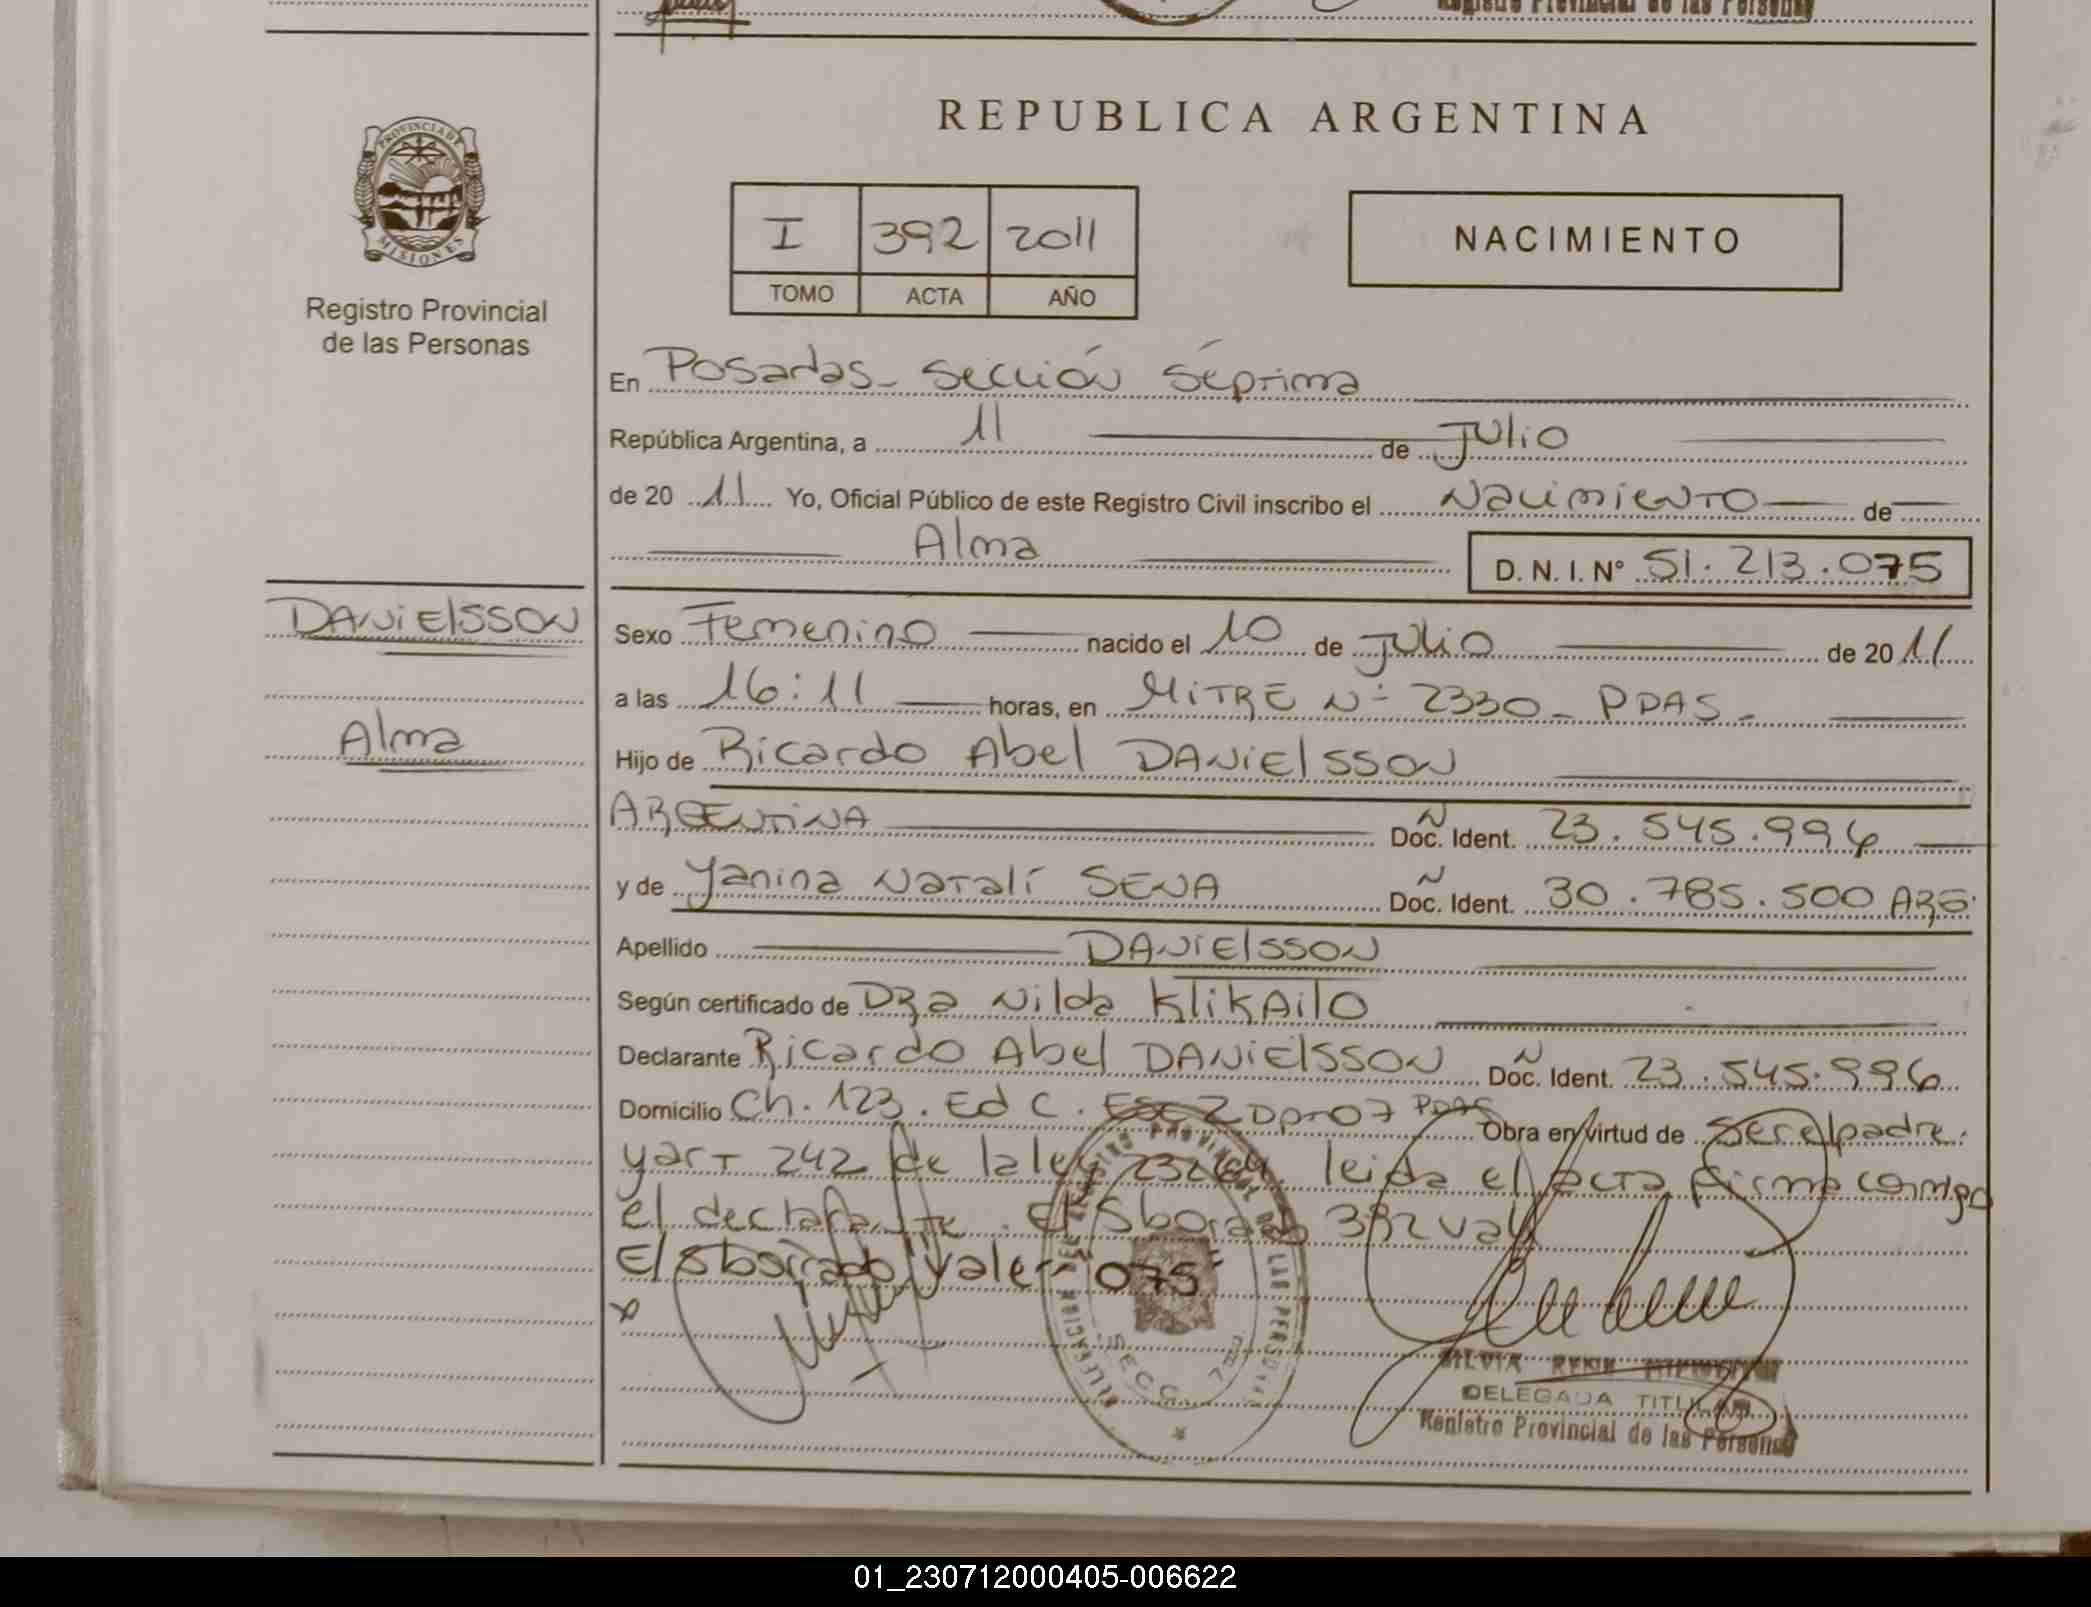 Registro Provincial de las Personas
REPUBLICA ARGENTINA
PROVINCIA DE
MISIONES
Registro Provincial
de las Personas
I 392 2011
TOMO ACTA AÑO
NACIMIENTO
En Posadas - Sección Séptima
República Argentina, a 11 de Julio
de 20 11 Yo, Oficial Público de este Registro Civil inscribo el Nacimiento de
Alma
D. N. I. Nº 51.213.075
DANiElSSON
Alma
Sexo Femenino nacido el 10 de Julio de 20 11
a las 16:11 horas, en MiTRE Nº 2330 - PDAS -
Hijo de Ricardo Abel DANiElSSON
ARGENTiNA Doc. Ident. 23.545.996
y de Yanina Natalí SENA Doc. Ident. 30.785.500 ARG.
Apellido DANiElSSON
Según certificado de DRa Nilda KliKAilO
Declarante Ricardo Abel DANiElSSON Doc. Ident. 23.545.996
Domicilio Ch. 123. Ed C. Esc 2 Dpto 07 PDAS Obra en virtud de Ser el padre.
y art 242 de la ley 23264. leida el acta firma conmigo
el declarante. El Sborrado 392 vale
El Sborrado Vale - 075 -
DELEGACION REGISTRO PROVINCIAL DE LAS PERSONAS
SECC. 7
SILVIA
DELEGADA TITULAR
Registro Provincial de las Personas
01_230712000405-006622